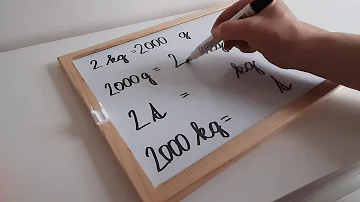 2 kg = 2000 g
2000 g = 2
2 t = kg
2000 kg = t